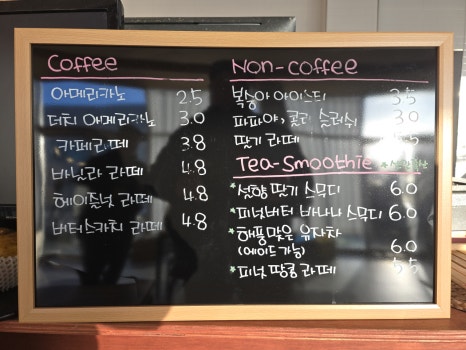 Coffee
아메리카노 2.5
더치 아메리카노 3.0
카페라떼 3.8
바닐라 라떼 4.8
헤이즐넛 라떼 4.8
버터스카치 라떼 4.8
Non-coffee
복숭아 아이스티 3.5
파파야, 콜라 슬러쉬 3.0
딸기 라떼 3.5
Tea-Smoothie
*설향 딸기 스무디 6.0
*피넛버터 바나나 스무디 6.0
*해풍맞은 유자차
(에이드 가능) 6.0
*피넛 땅콩 라떼 5.5